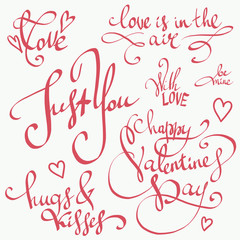 Love
love is in the
air
Just You
With
LOVE
be
mine
happy
Valentine's
Day
hugs &
kisses